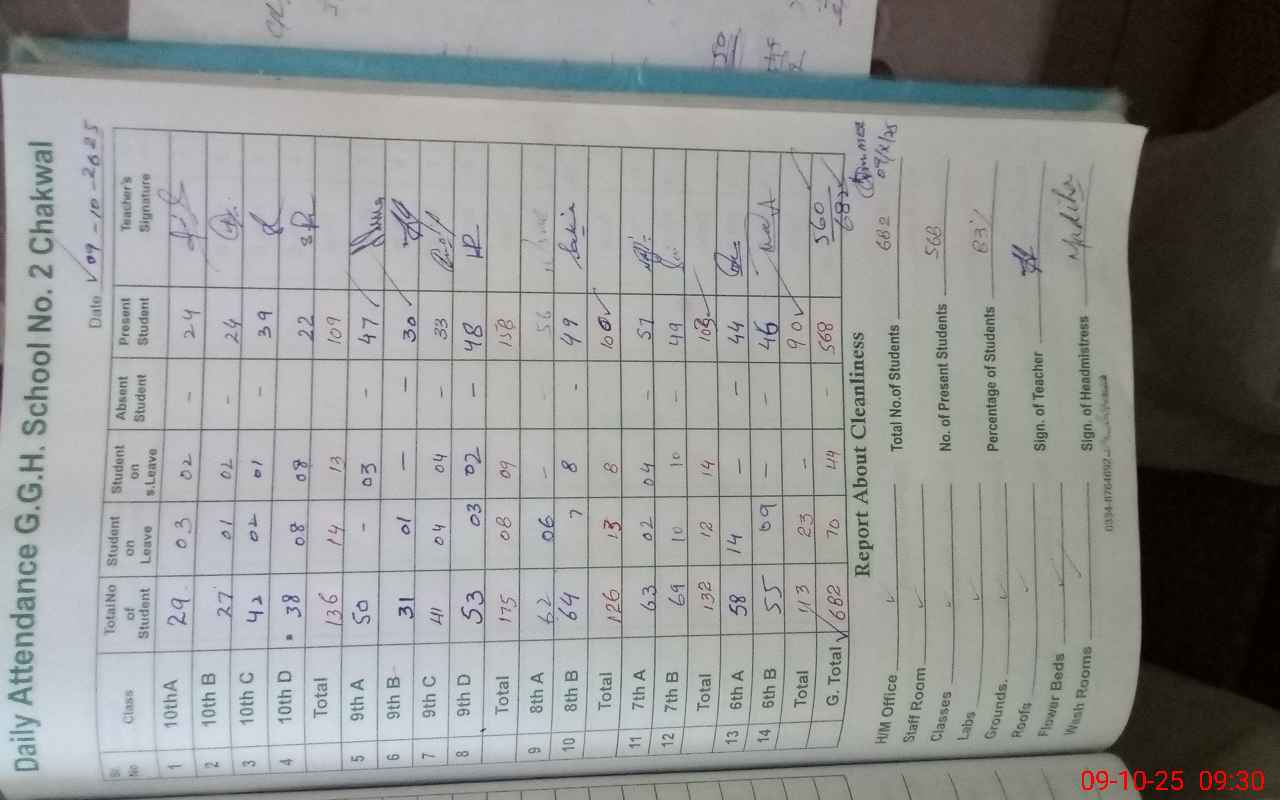 Daily Attendance G.G.H. School No. 2 Chakwal
Date 09-10-2025
Sr No Class Total No of Student Student on Leave Student on s.Leave Absent Student Present Student Teacher's Signature
1 10th A 29 03 02 - 24
2 10th B 27 01 02 - 24
3 10th C 42 02 01 - 39
4 10th D 38 08 08 22
Total 136 14 13 109
5 9th A 50 - 03 - 47
6 9th B 31 01 - - 30
7 9th C 41 04 04 - 33
8 9th D 53 03 02 - 48
Total 175 08 09 158
9 8th A 62 06 - - 56
10 8th B 64 7 8 - 49
Total 126 13 8
11 7th A 63 02 04 - 57
12 7th B 69 10 10 - 49
Total 132 12 14
13 6th A 58 14 - - 44
14 6th B 55 09 - - 46
Total 113 23 - 90 560
G. Total 682 70 44 - 568 682
09/X/25
Report About Cleanliness
H/M Office Total No.of Students 682
Staff Room
Classes No. of Present Students 568
Labs
Grounds. Percentage of Students 83%
Roofs Sign. of Teacher
Flower Beds
Wash Rooms Sign. of Headmistress Madiha
50
09-10-25 09:30